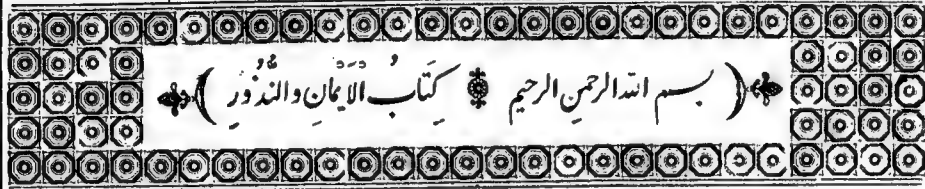 ﴿ بسم الله الرحمن الرحيم ۞ كِتَابُ الْأَيْمَانِ وَالنُّذُورِ ﴾